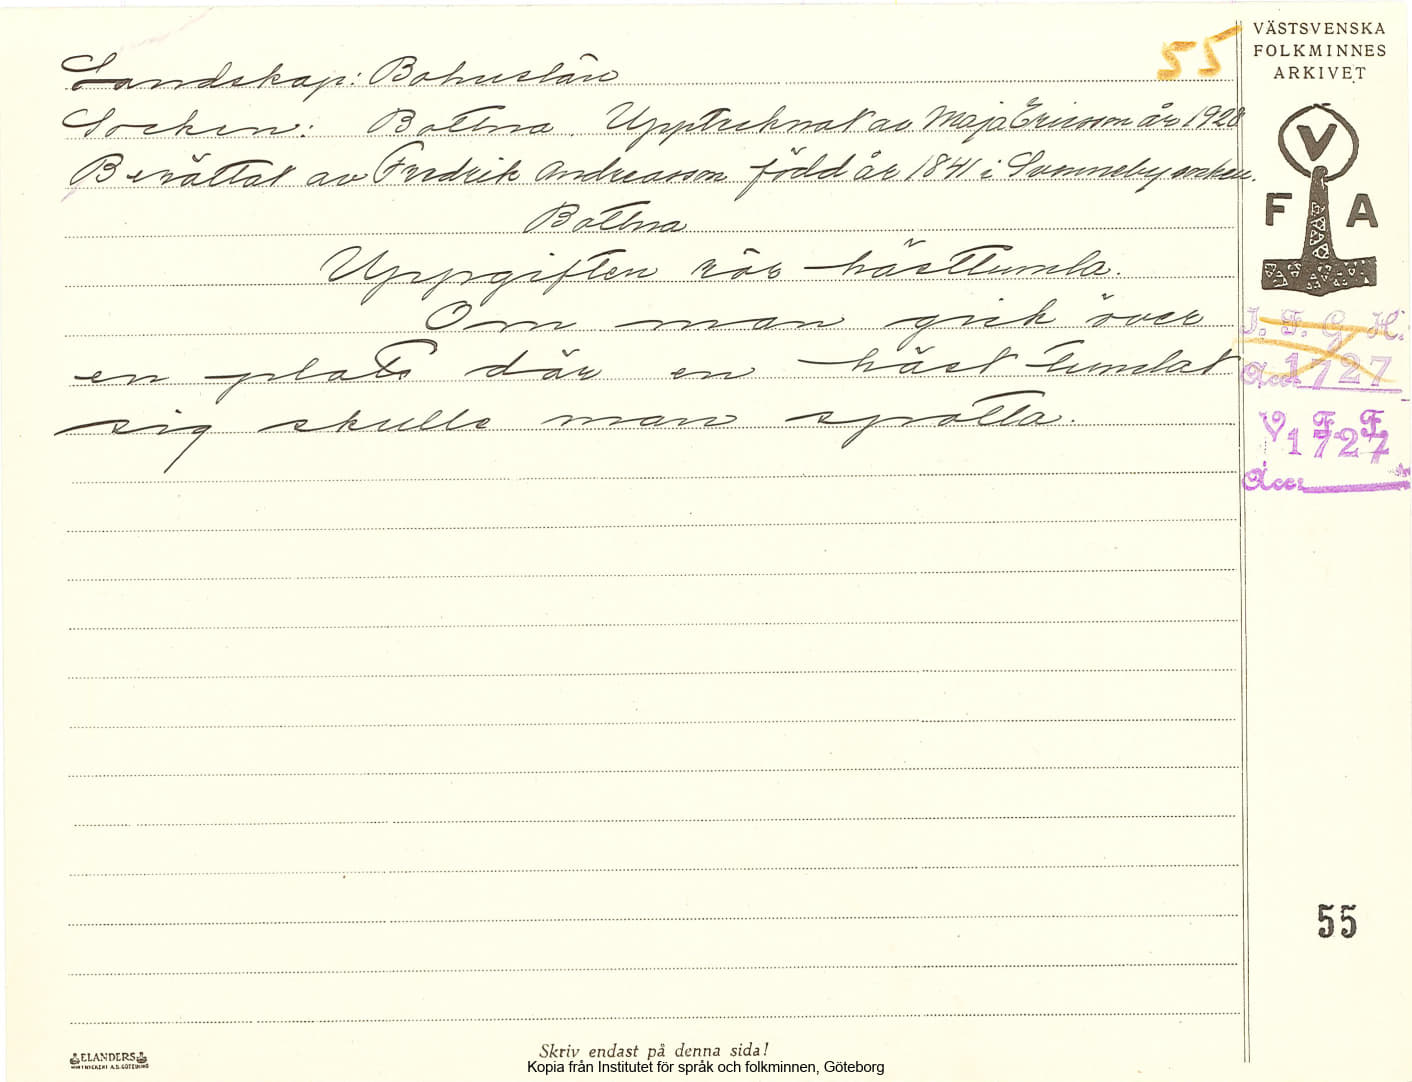 55
VÄSTSVENSKA
FOLKMINNES
ARKIVET
Landskap: Bohuslän
Socken: Bottna. Upptecknat av Maja Ericson år 1928
Berättat av Fredrik Andreasson född år 1841 i Svenneby socken.
Bottna
Uppgiften rör hästtumla.
Om man gick över
en plats där en häst tumlat
sig skulle man spotta.
V
F A
I. F. G. H.
Acc. 1727
V. F. F.
1727
Acc.
55
ELANDERS
Skriv endast på denna sida!
Kopia från Institutet för språk och folkminnen, Göteborg